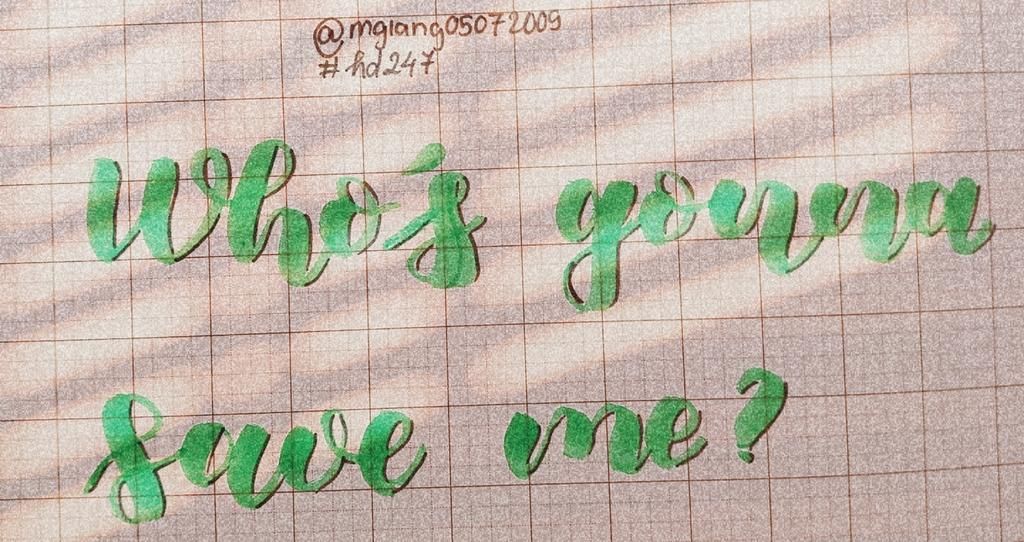 @mgiang05072009
#hd247
Who's gonna
save me?